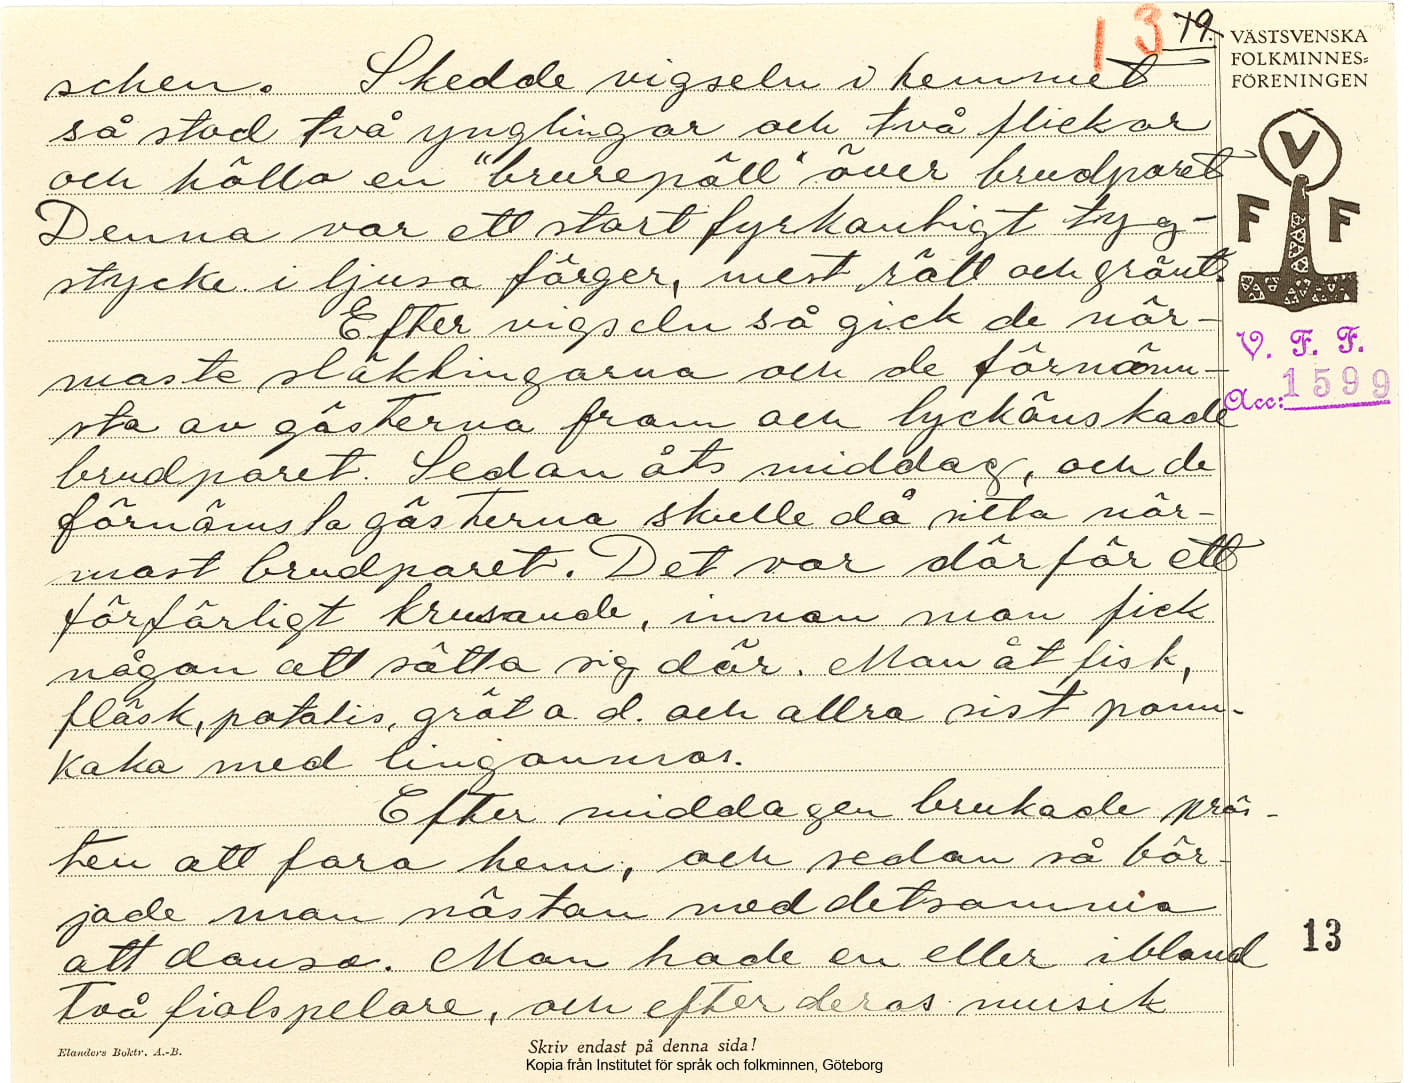 13 19.
VÄSTSVENSKA
FOLKMINNES=
FÖRENINGEN
V
F F
V. F. F.
Acc: 1599
schen. Skedde vigseln i hemmet
så stod två ynglingar och två flickor
och höllo en "brurepäll" över brudparet
Denna var ett stort fyrkantigt tyg-
stycke i ljusa färger, mest rött och grönt.
Efter vigseln så gick de när-
maste släktingarna och de förnäm-
sta av gästerna fram och lyckönskade
brudparet. Sedan åts middag, och de
förnämsta gästerna skulle då sitta när-
mast brudparet. Det var därför ett
förfärligt krusande, innan man fick
någon att sätta sig där. Man åt fisk,
fläsk, potatis, gröt o. d. och allra sist pann-
kaka med lingonmos.
Efter middagen brukade präs-
ten att fara hem, och sedan så bör-
jade man nästan med detsamma
att dansa. Man hade en eller ibland
två fiolspelare, och efter deras musik
13
Elanders Boktr. A.-B.
Skriv endast på denna sida!
Kopia från Institutet för språk och folkminnen, Göteborg